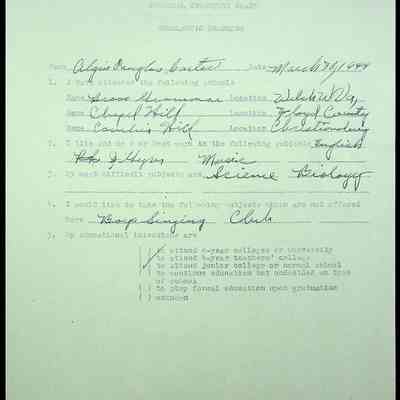 Name Algie Douglas Date March 20, 1944
1. I have attended the following schools
Name Grammar Location Welch W.Va.
Name Chapel Hill Location Floyd County
Name Hill Location Christiansburg
2. I like and do my best work in the following subjects English
Music
3. My most difficult subjects are Science Biology
4. I would like to take the following subjects which are not offered
here Boys Singing Club
5. My educational intentions are
( ) to attend 4-year colleges or university
to attend 4-year teachers' college
to attend junior college or normal school
( ) to continue education but undecided on type
of school
( ) to stop formal education upon graduation
( ) unknown